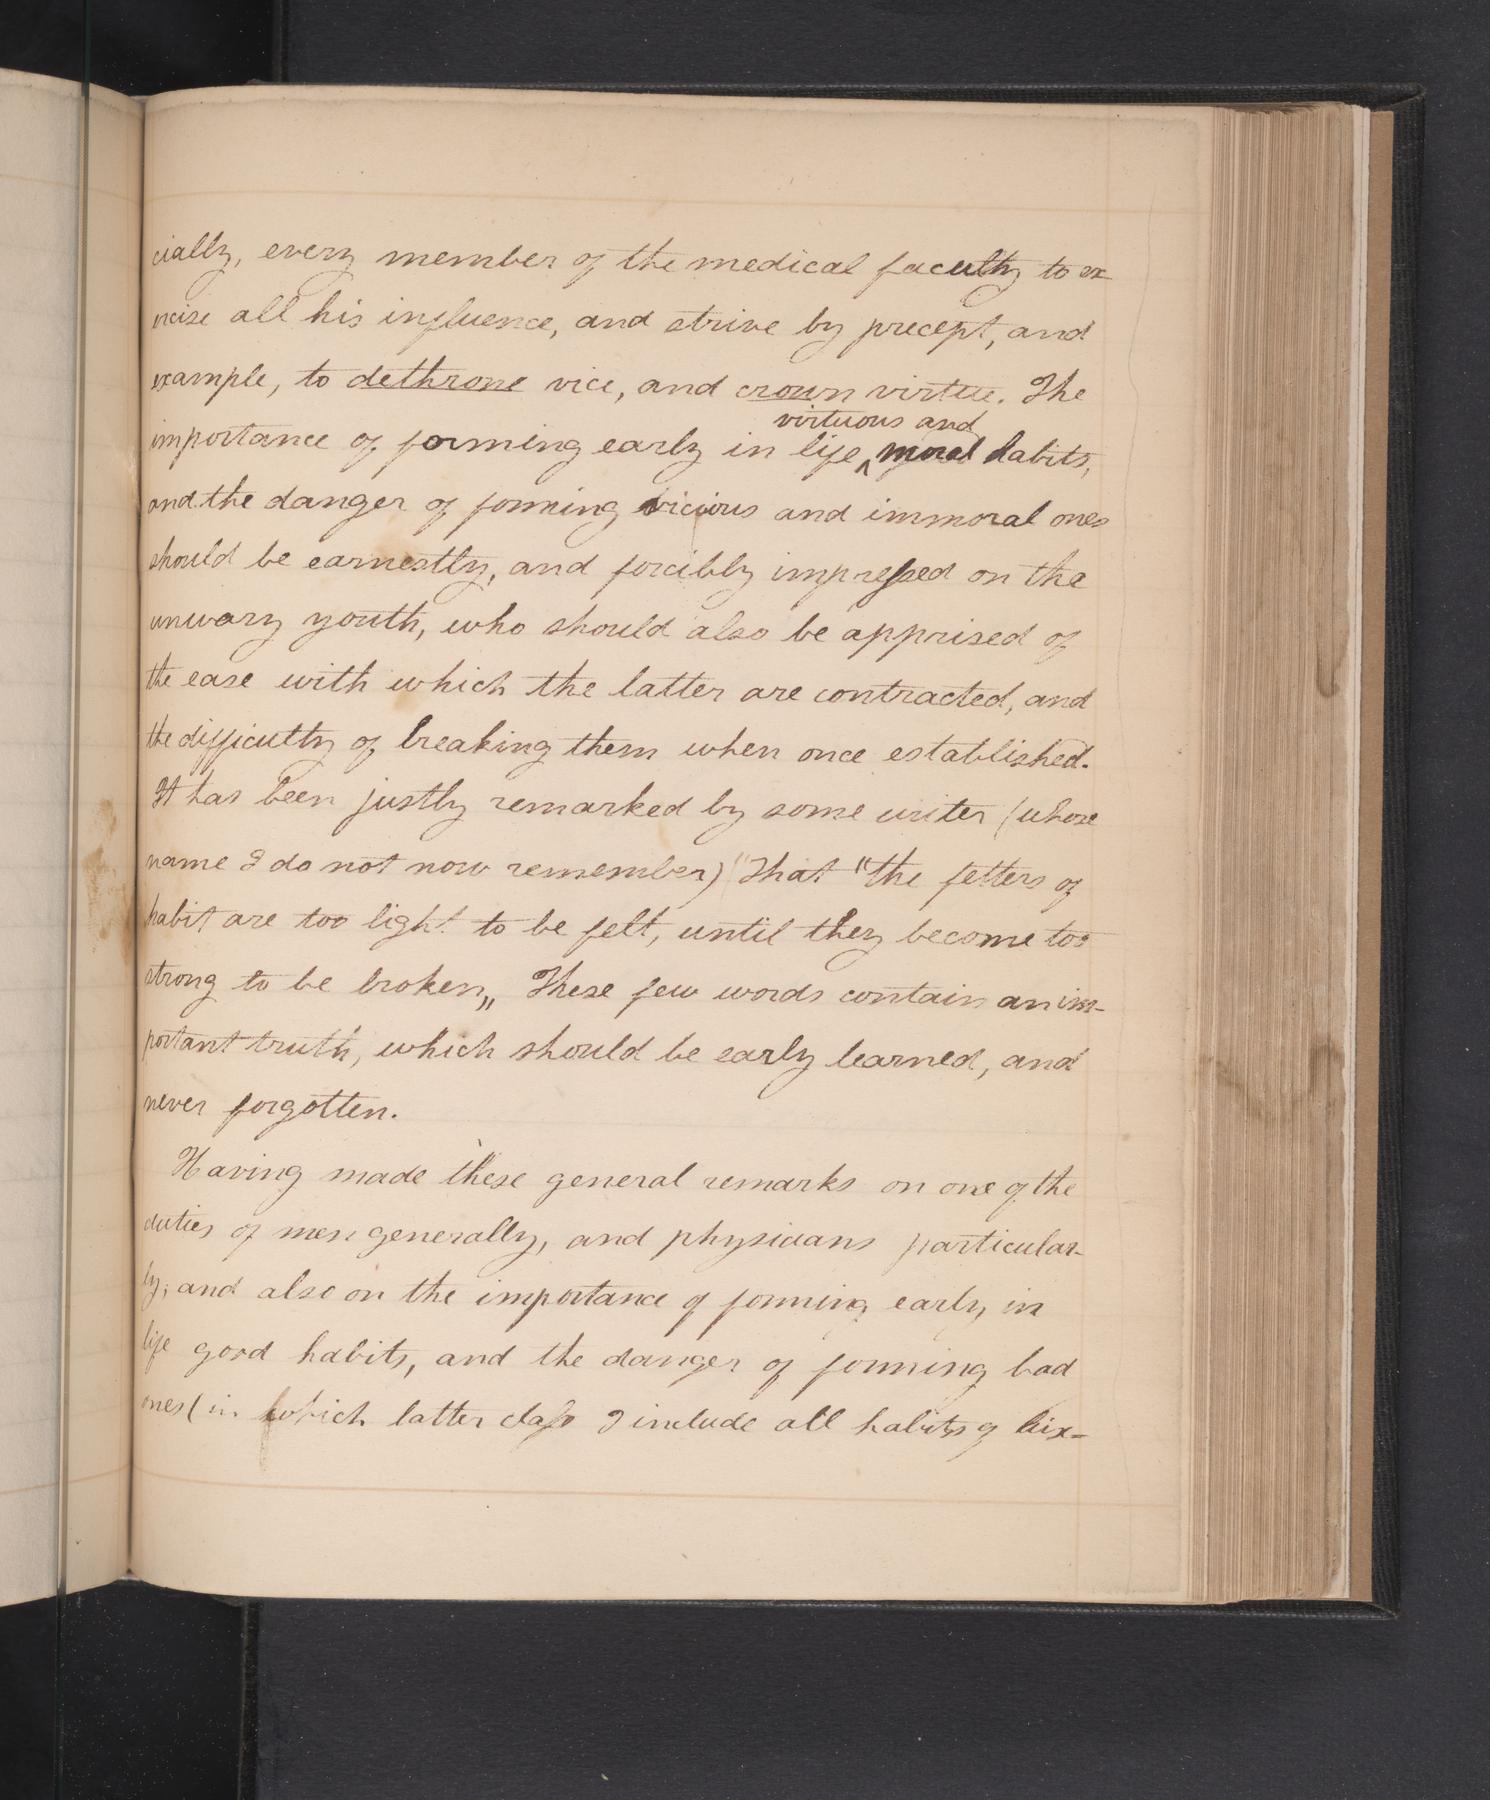 cially, every member of the medical faculty to ex
ercise all his influence, and strive by precept, and
example, to dethrone vice, and crown virtue. The
virtuous and
importance of forming early in life ^ moral habits,
and the danger of forming vicious and immoral ones
should be earnestly, and forcibly impressed on the
unwary youth, who should also be apprised of
the ease with which the latter are contracted, and
the difficulty of breaking them when once established.
It has been justly remarked by some writer (whose
name I do not now remember) "That "the fetters of
habit are too light to be felt, until they become too
strong to be broken„ These few words contain an im-
portant truth, which should be early learned, and
never forgotten.
Having made these general remarks on one of the
duties of men generally, and physicians particular-
ly; and also on the importance of forming early in
life good habits, and the danger of forming bad
ones (in which latter class I include all habits of lux-